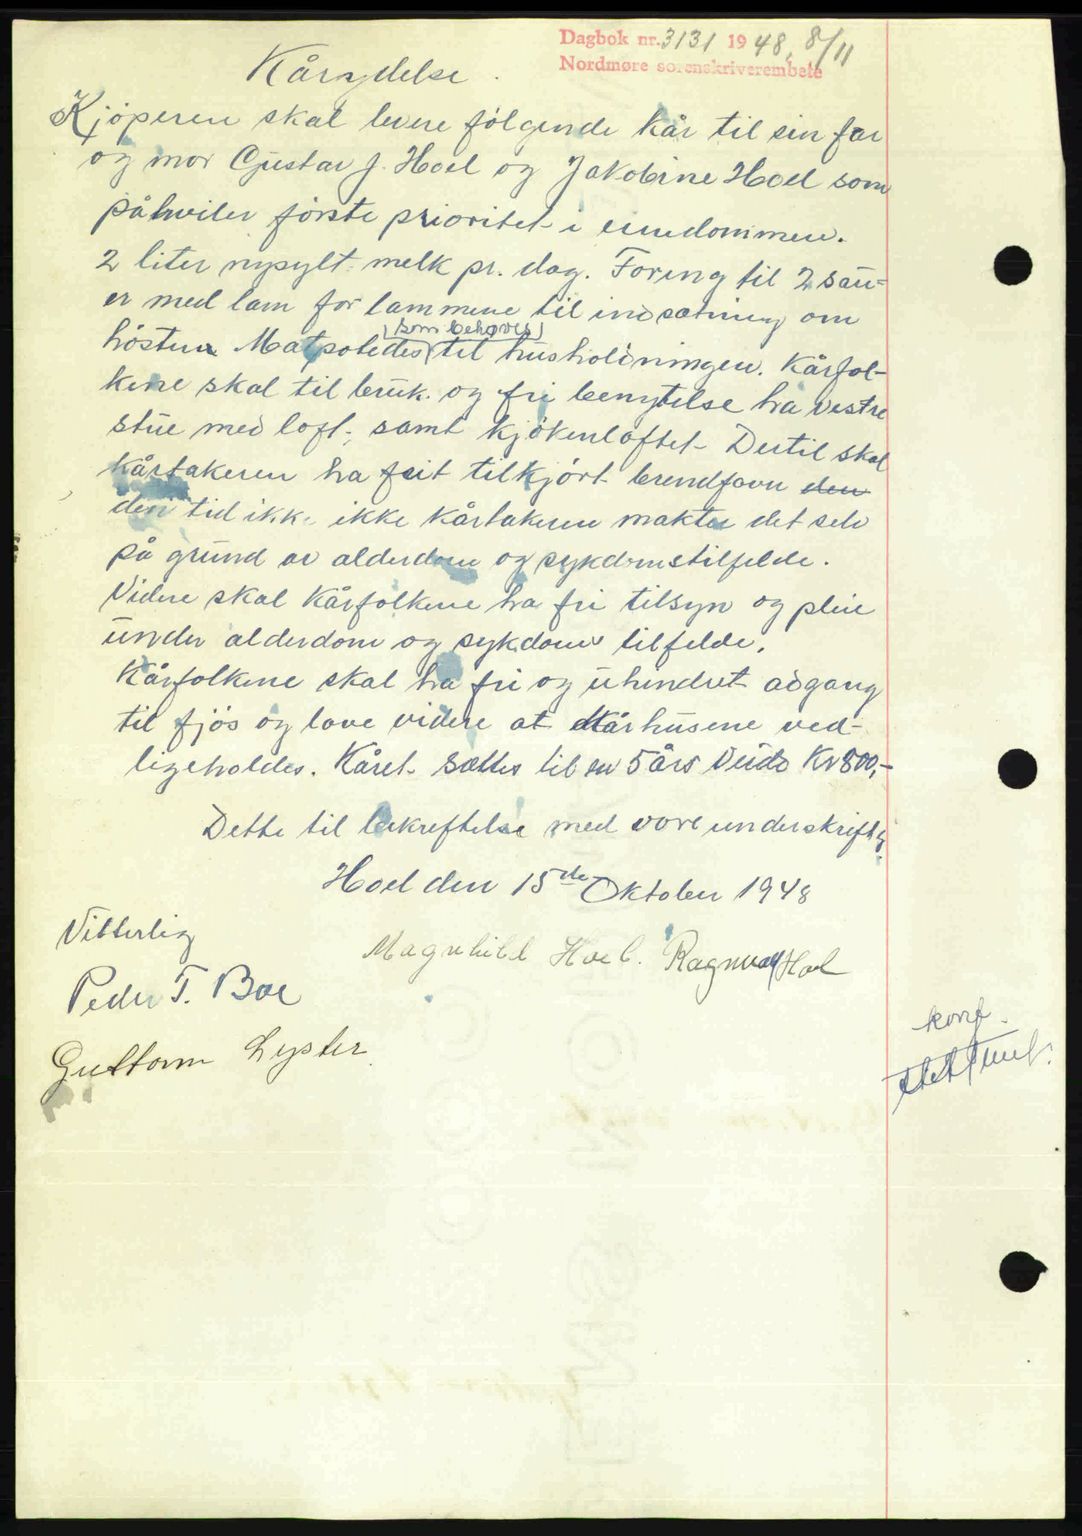 Dagbok nr. 3131 1948, 8/11
Nordmøre sorenskriverembete
Kårydelse.
Kjöperen skal levere følgende kår til sin far
og mor Gustav J. Hoel og Jakobine Hoel som
påhviler förste prioritet i eiendommen.
2 liter nysylt melk pr. dag. Foring til 2 sau-
er med lam for lammene til indsætning om
hösten Matpotedes (som behøves) til husholdningen. Kårfol-
kene skal til bruk og fri benyttelse ha vestre
stue med loft, samt kjökenloftet Dertil skal
kårtakeren ha frit tilkjört brendfavn den
den tid ikke ikke kårtakerene makter det selv
på grund av alderdom og sykdomstilfelde.
Videre skal kårfolkene ha fri tilsyn og pleie
under alderdom og sykdoms tilfelde.
Kårfolkene skal ha fri og uhindret adgang
til fjös og lave videre at kårhusene ved-
ligeholdes. Kåret sættes til en 5 års Verdi Kr 800,-
Dette til bekreftelse med vore underskrifter
Hoel den 15de Oktober 1948
Vitterlig
Magnhild Hoel. Ragnvald Hoel
Peder T. Boe
Guttorm Lyster
konf.